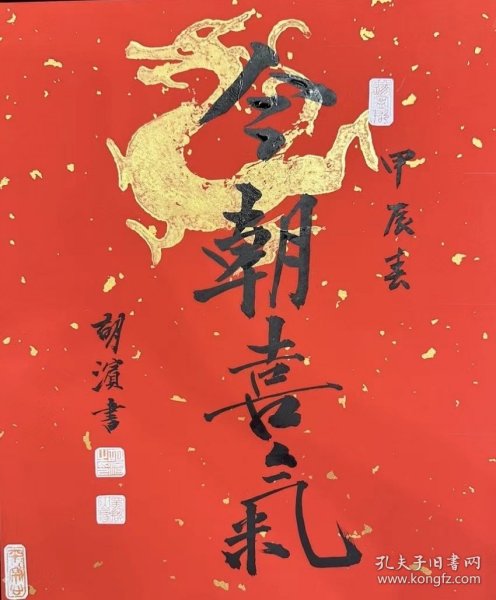 甲辰春
今朝喜氣
胡濱書
孔夫子旧书网
www.kongfz.com